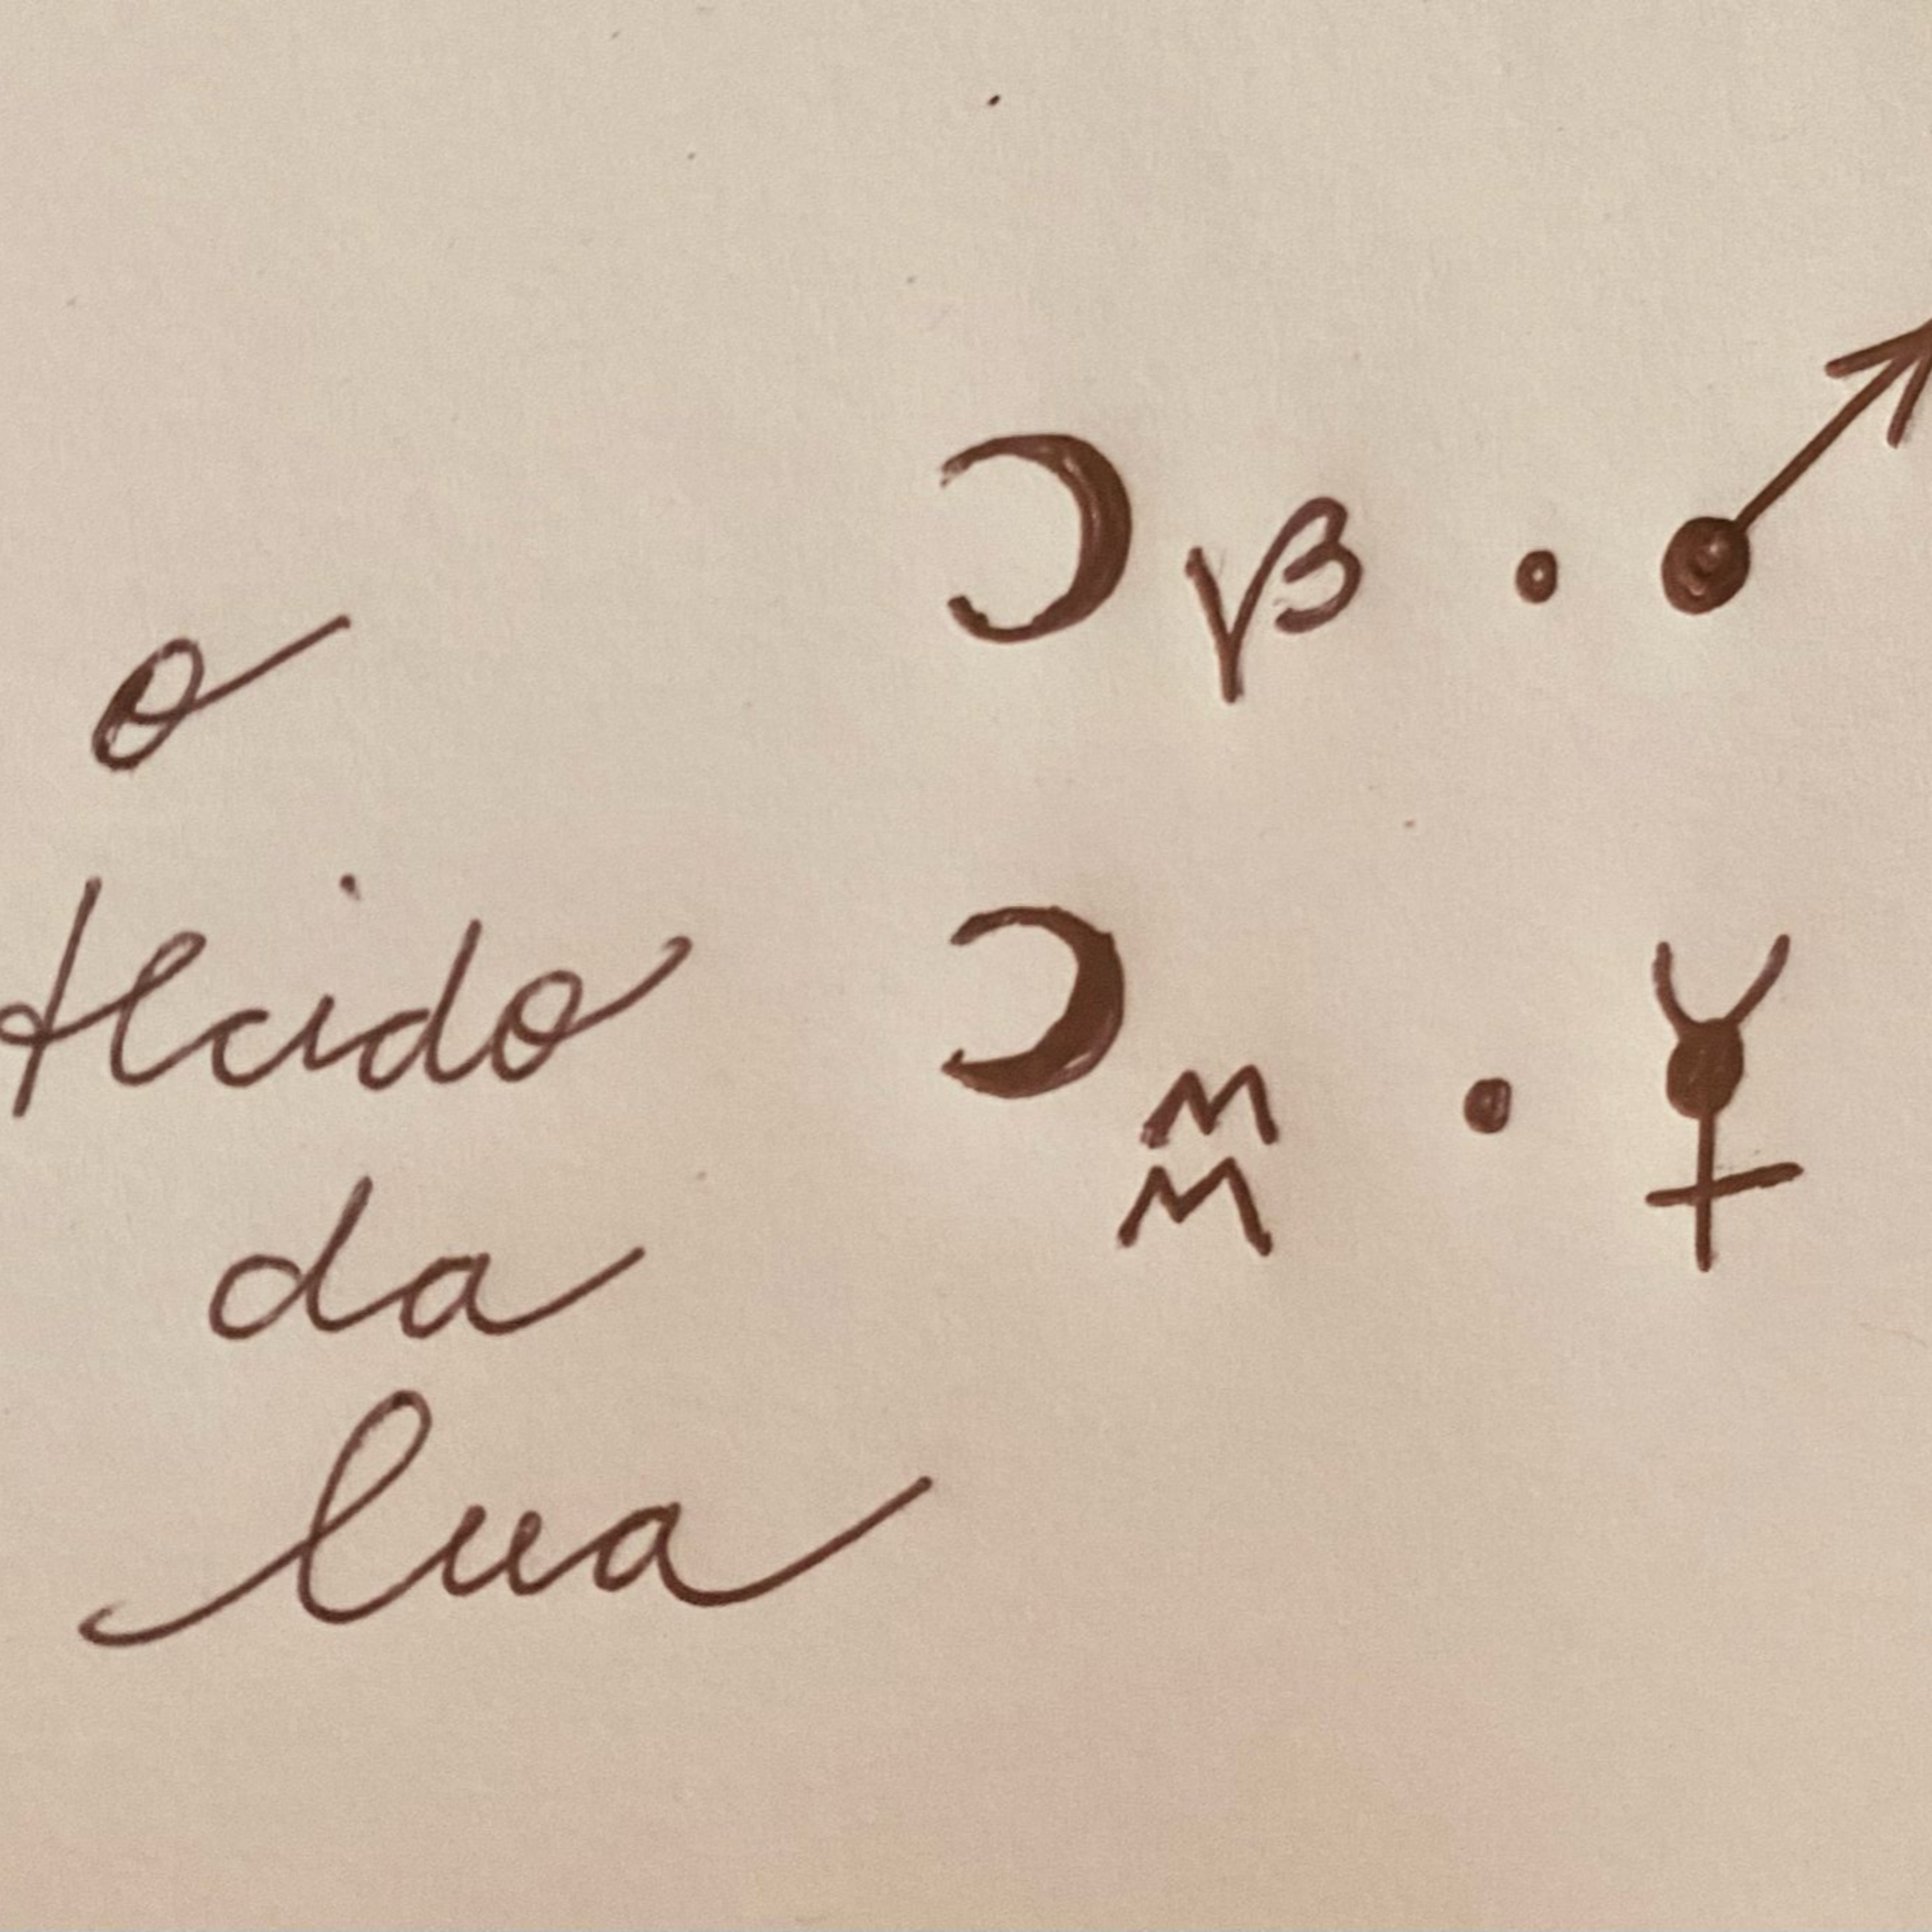 o
tecido
da
lua
☽ ♑ • ♂
☽ ♒ • ☿